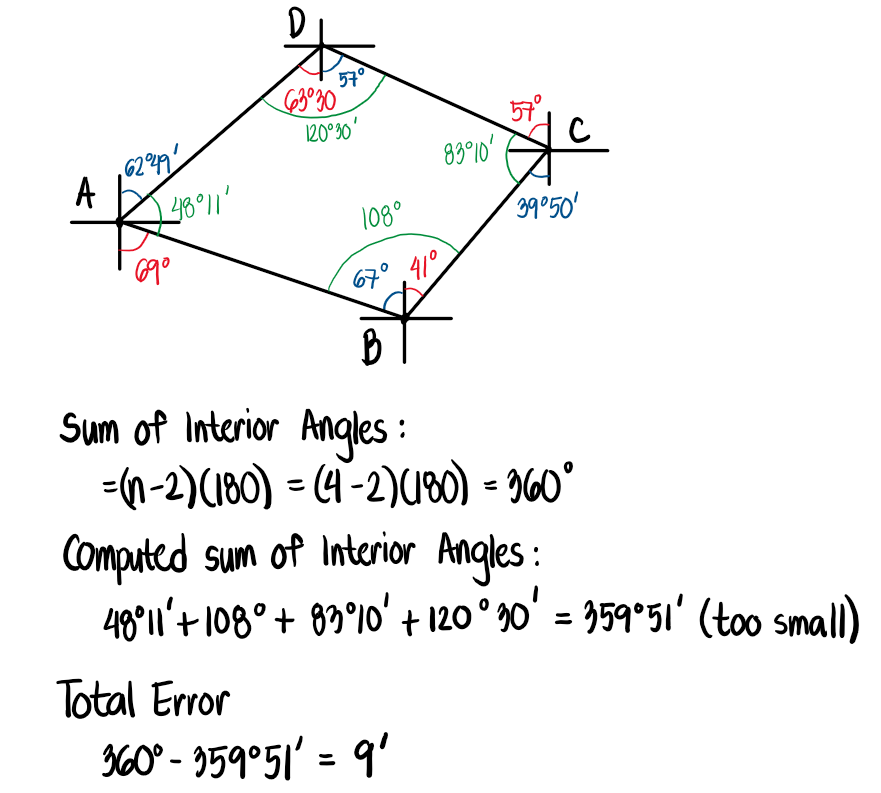 D
57°
63°30
120°30'
57°
C
83°10'
39°50'
62°49'
A
48°11'
69°
108°
67°
41°
B
Sum of Interior Angles:
=(n-2)(180) = (4-2)(180) = 360°
Computed sum of Interior Angles:
48°11'+108°+ 83°10' +120°30' = 359°51' (too small)
Total Error
360°- 359°51' = 9'